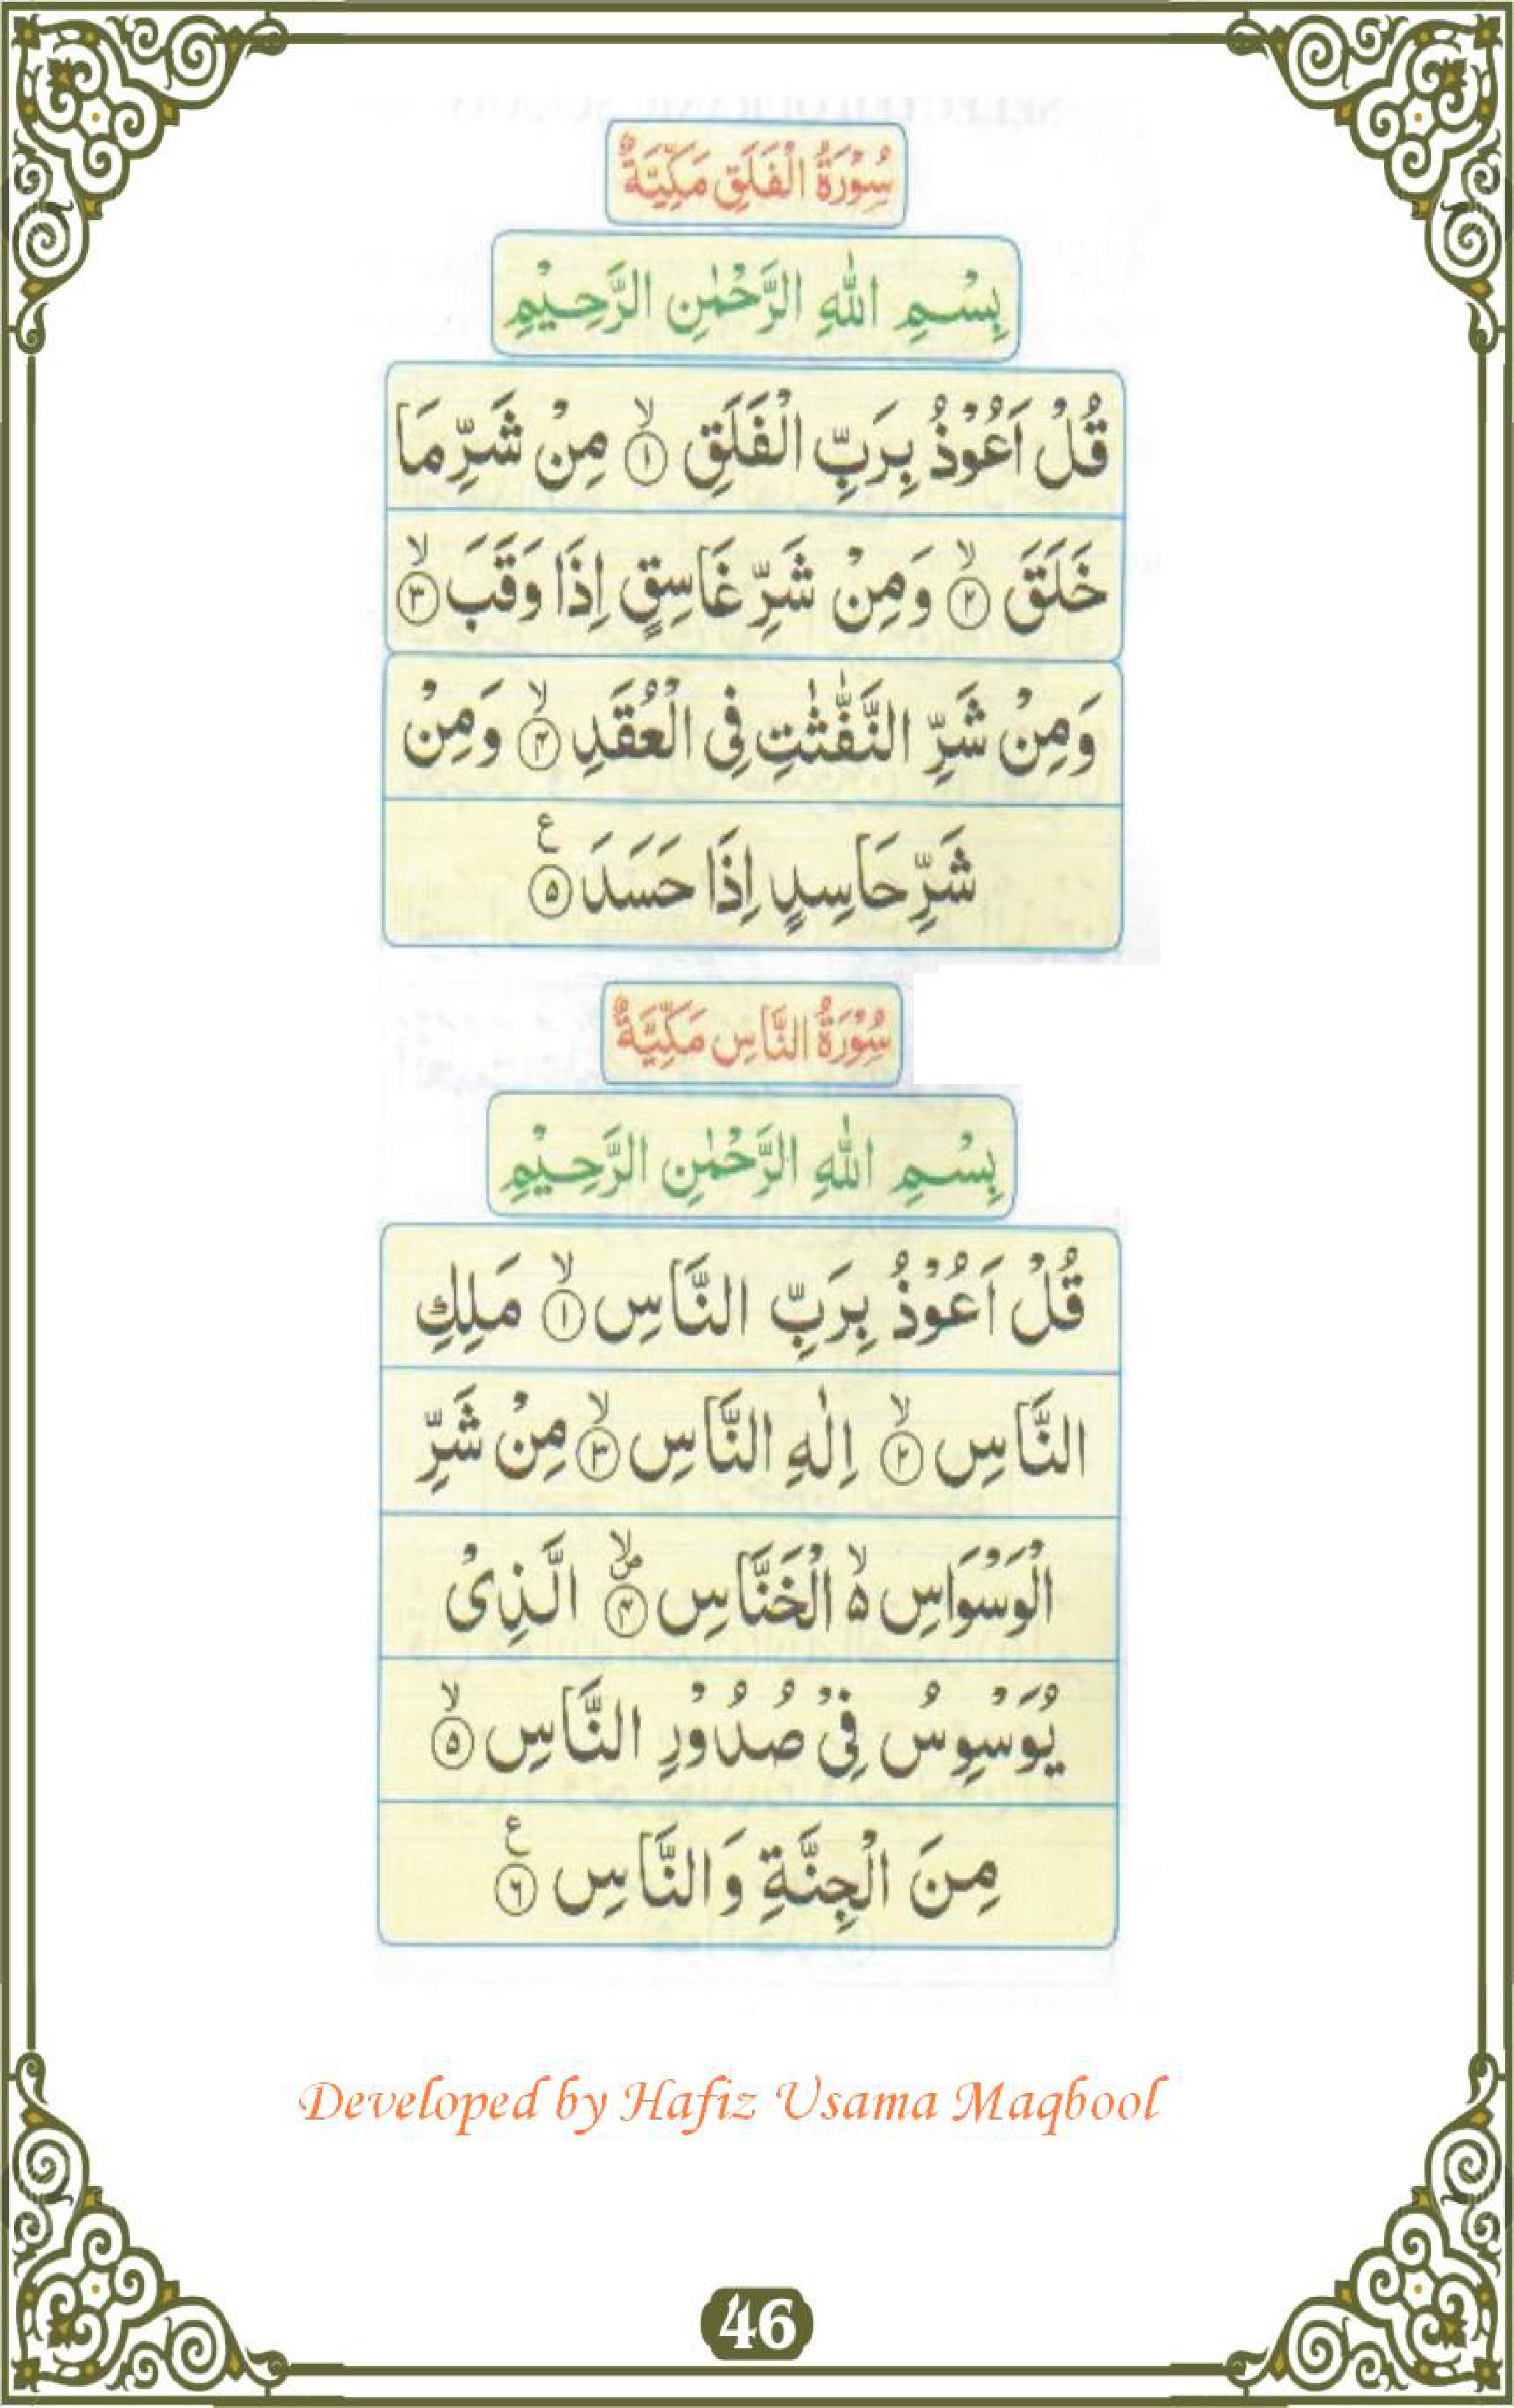 سُوْرَةُ الْفَلَقِ مَكِّيَّةٌ
بِسْمِ اللهِ الرَّحْمٰنِ الرَّحِيْمِ
قُلْ اَعُوْذُ بِرَبِّ الْفَلَقِ ۙ۱ مِنْ شَرِّ مَا
خَلَقَ ۙ۲ وَمِنْ شَرِّ غَاسِقٍ اِذَا وَقَبَ ۙ۳
وَمِنْ شَرِّ النَّفّٰثٰتِ فِى الْعُقَدِ ۙ۴ وَمِنْ
شَرِّ حَاسِدٍ اِذَا حَسَدَ ۵ ع
سُوْرَةُ النَّاسِ مَكِّيَّةٌ
بِسْمِ اللهِ الرَّحْمٰنِ الرَّحِيْمِ
قُلْ اَعُوْذُ بِرَبِّ النَّاسِ ۙ۱ مَلِكِ
النَّاسِ ۙ۲ اِلٰهِ النَّاسِ ۙ۳ مِنْ شَرِّ
الْوَسْوَاسِ ۙ۵ الْخَنَّاسِ ۙ۴ ص الَّذِىْ
يُوَسْوِسُ فِىْ صُدُوْرِ النَّاسِ ۙ۵
مِنَ الْجِنَّةِ وَالنَّاسِ ۶ ع
Developed by Hafiz Usama Maqbool
46